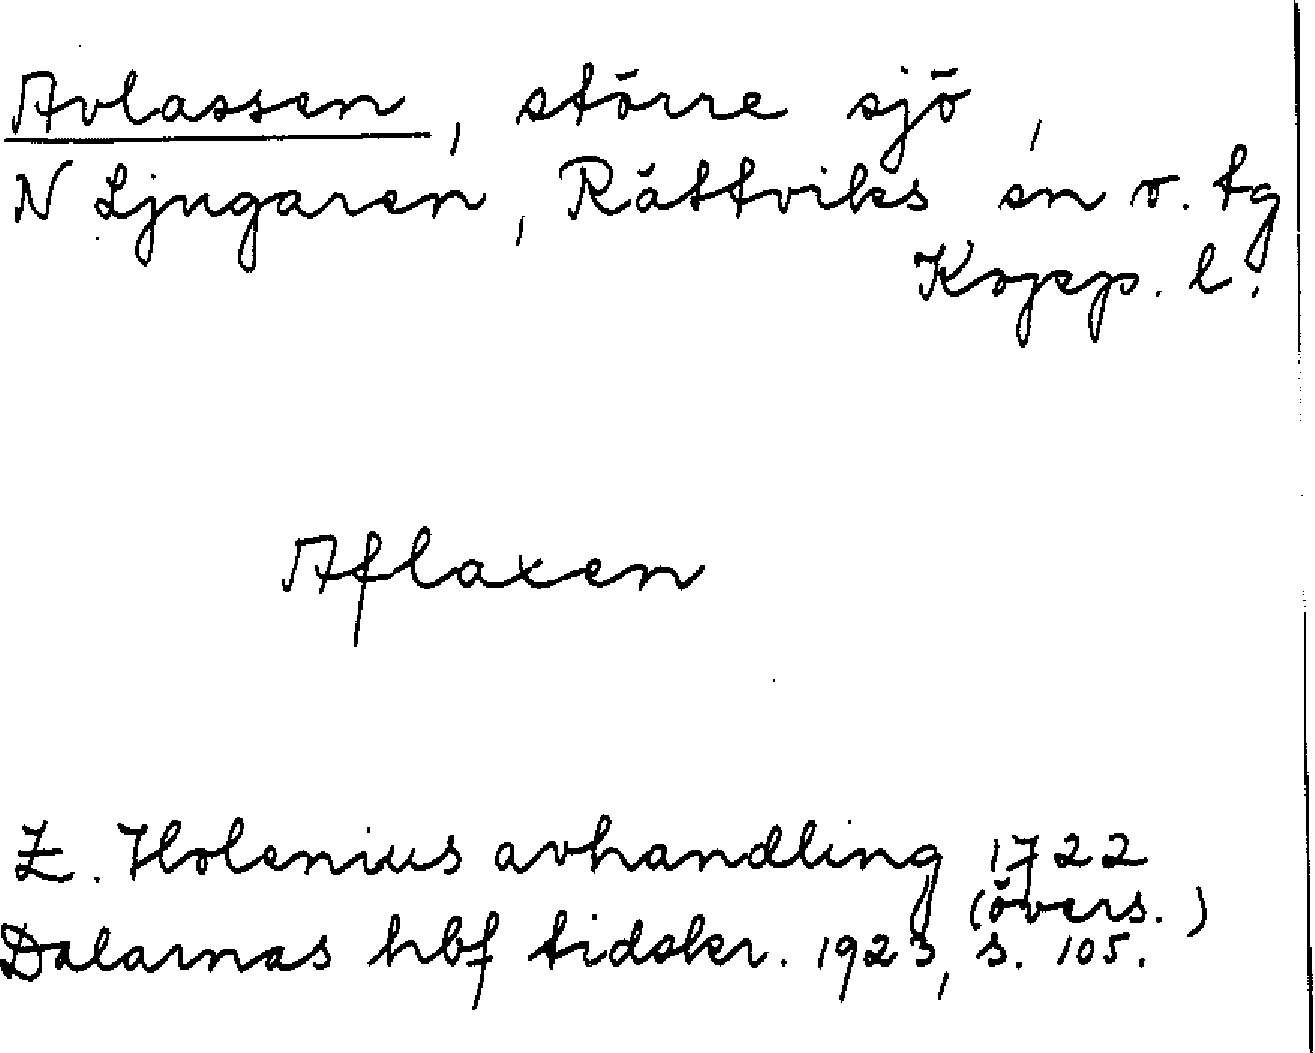 Avlassen, större sjö,
N Ljugaren, Rättviks sn o. tg
Kopp. l.
Aflaxen
Z. Holenius avhandling 1722
(övers.)
Dalarnas hbf tidskr. 1923, s. 105.